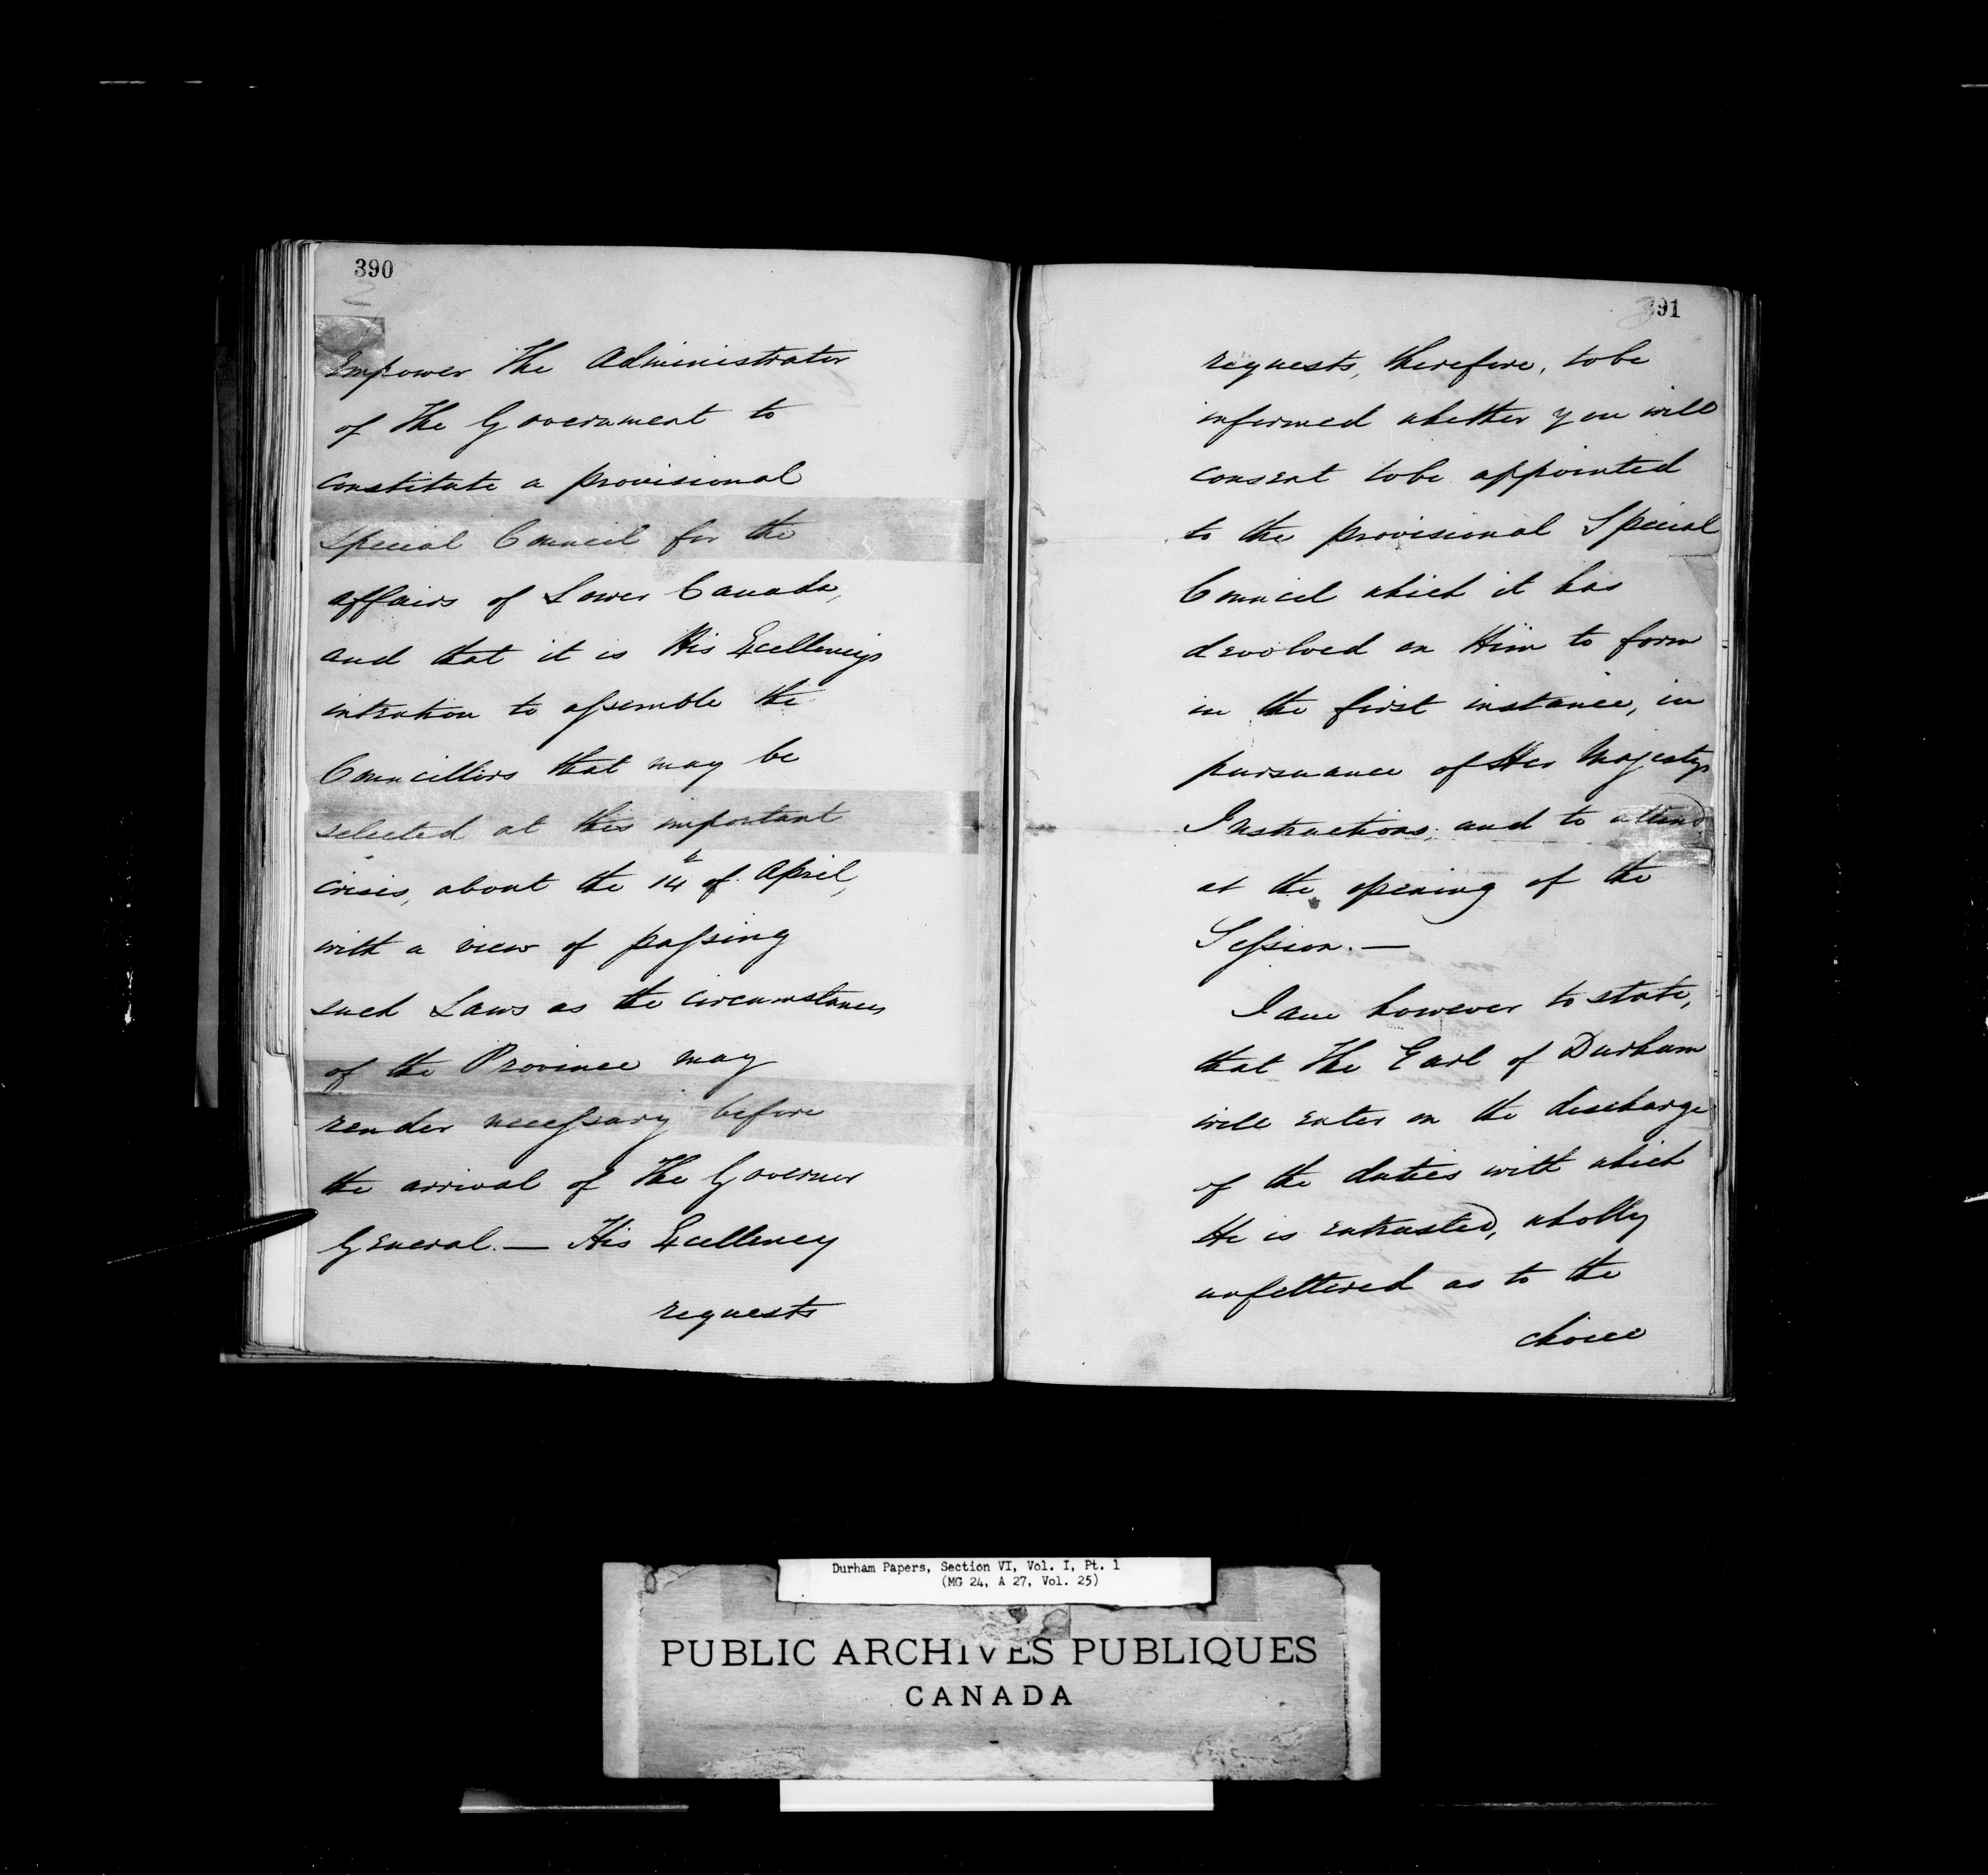 390
Empower The Administrator
of The Government to
constitute a provisional
Special Council for the
affairs of Lower Canada,
and that it is His Excellency's
intention to assemble the
Councillors that may be
selected at this important
crisis, about the 14th of April,
with a view of passing
such Laws as the circumstances
of the Province may
render necessary before
the arrival of The Governor
General. — His Excellency
requests
391
requests, therefore, to be
informed whether you will
consent to be appointed
to the provisional Special
Council which it has
devolved on Him to form
in the first instance, in
pursuance of Her Majesty's
Instructions; and to attend
at the opening of the
Session. —
I am however to state,
that The Earl of Durham
will enter on the discharge
of the duties with which
He is entrusted, wholly
unfettered as to the
choice
Durham Papers, Section VI, Vol. I, Pt. 1
(MG 24, A 27, Vol. 25)
PUBLIC ARCHIVES PUBLIQUES
CANADA